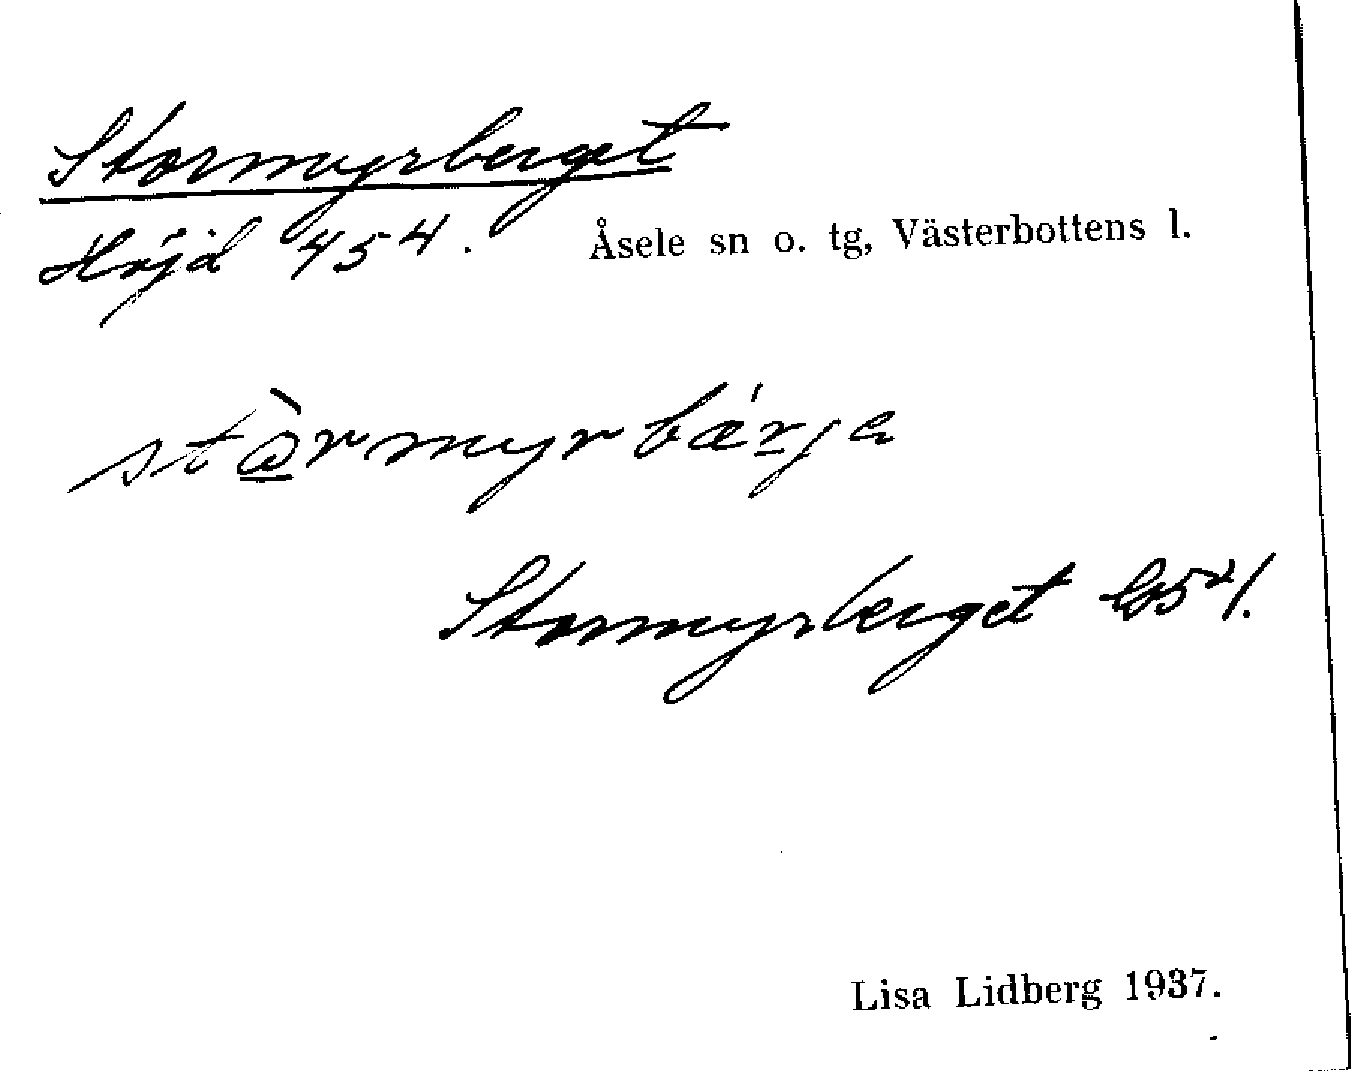 Stormyrberget
Höjd 454. Åsele sn o. tg, Västerbottens l.
Stormyrberget
Lisa Lidberg 1937.